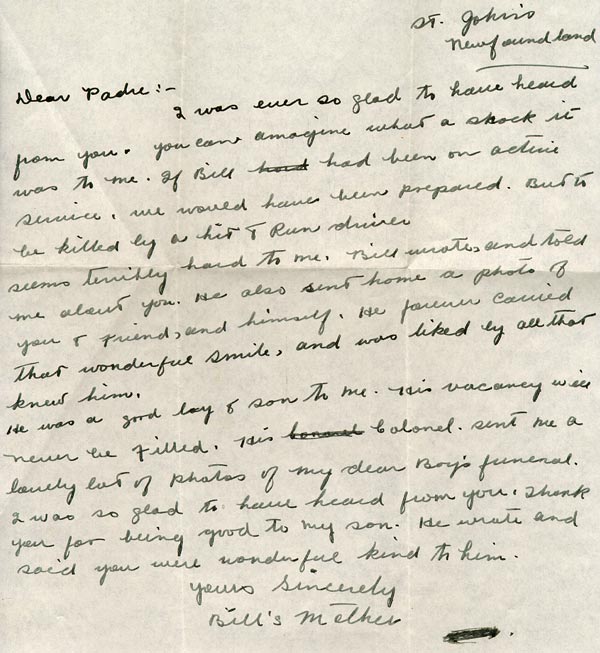 St. John's
Newfoundland
Dear Padre:-
I was ever so glad to have heard
from you. you can amagine what a shock it
was to me. If Bill had been on active
service, we would have been prepared. But to
be killed by a hit & Run driver
seems terribly hard to me. Bill wrote, and told
me about you. He also sent home a photo of
you & Friend, and himself. He forever carried
that wonderful smile, and was liked by all that
knew him.
He was a good boy & son to me. His vacancy will
never be filled. His Colonel. sent me a
lovely lot of photos of my dear Boy's funeral.
I was so glad to have heard from you. Thank
you for being good to my son. He wrote and
said you were wonderful kind to him.
yours Sincerely
Bill's Mother